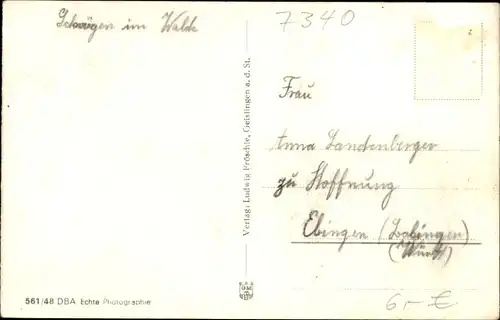 im Walde
7340
Frau
Anna Landenberger
zu Hoffnung
Ebingen (
(Württ)
Verlag: Ludwig Fröschle, Geislingen a. d. St.
561/48 DBA Echte Photographie
6,- €